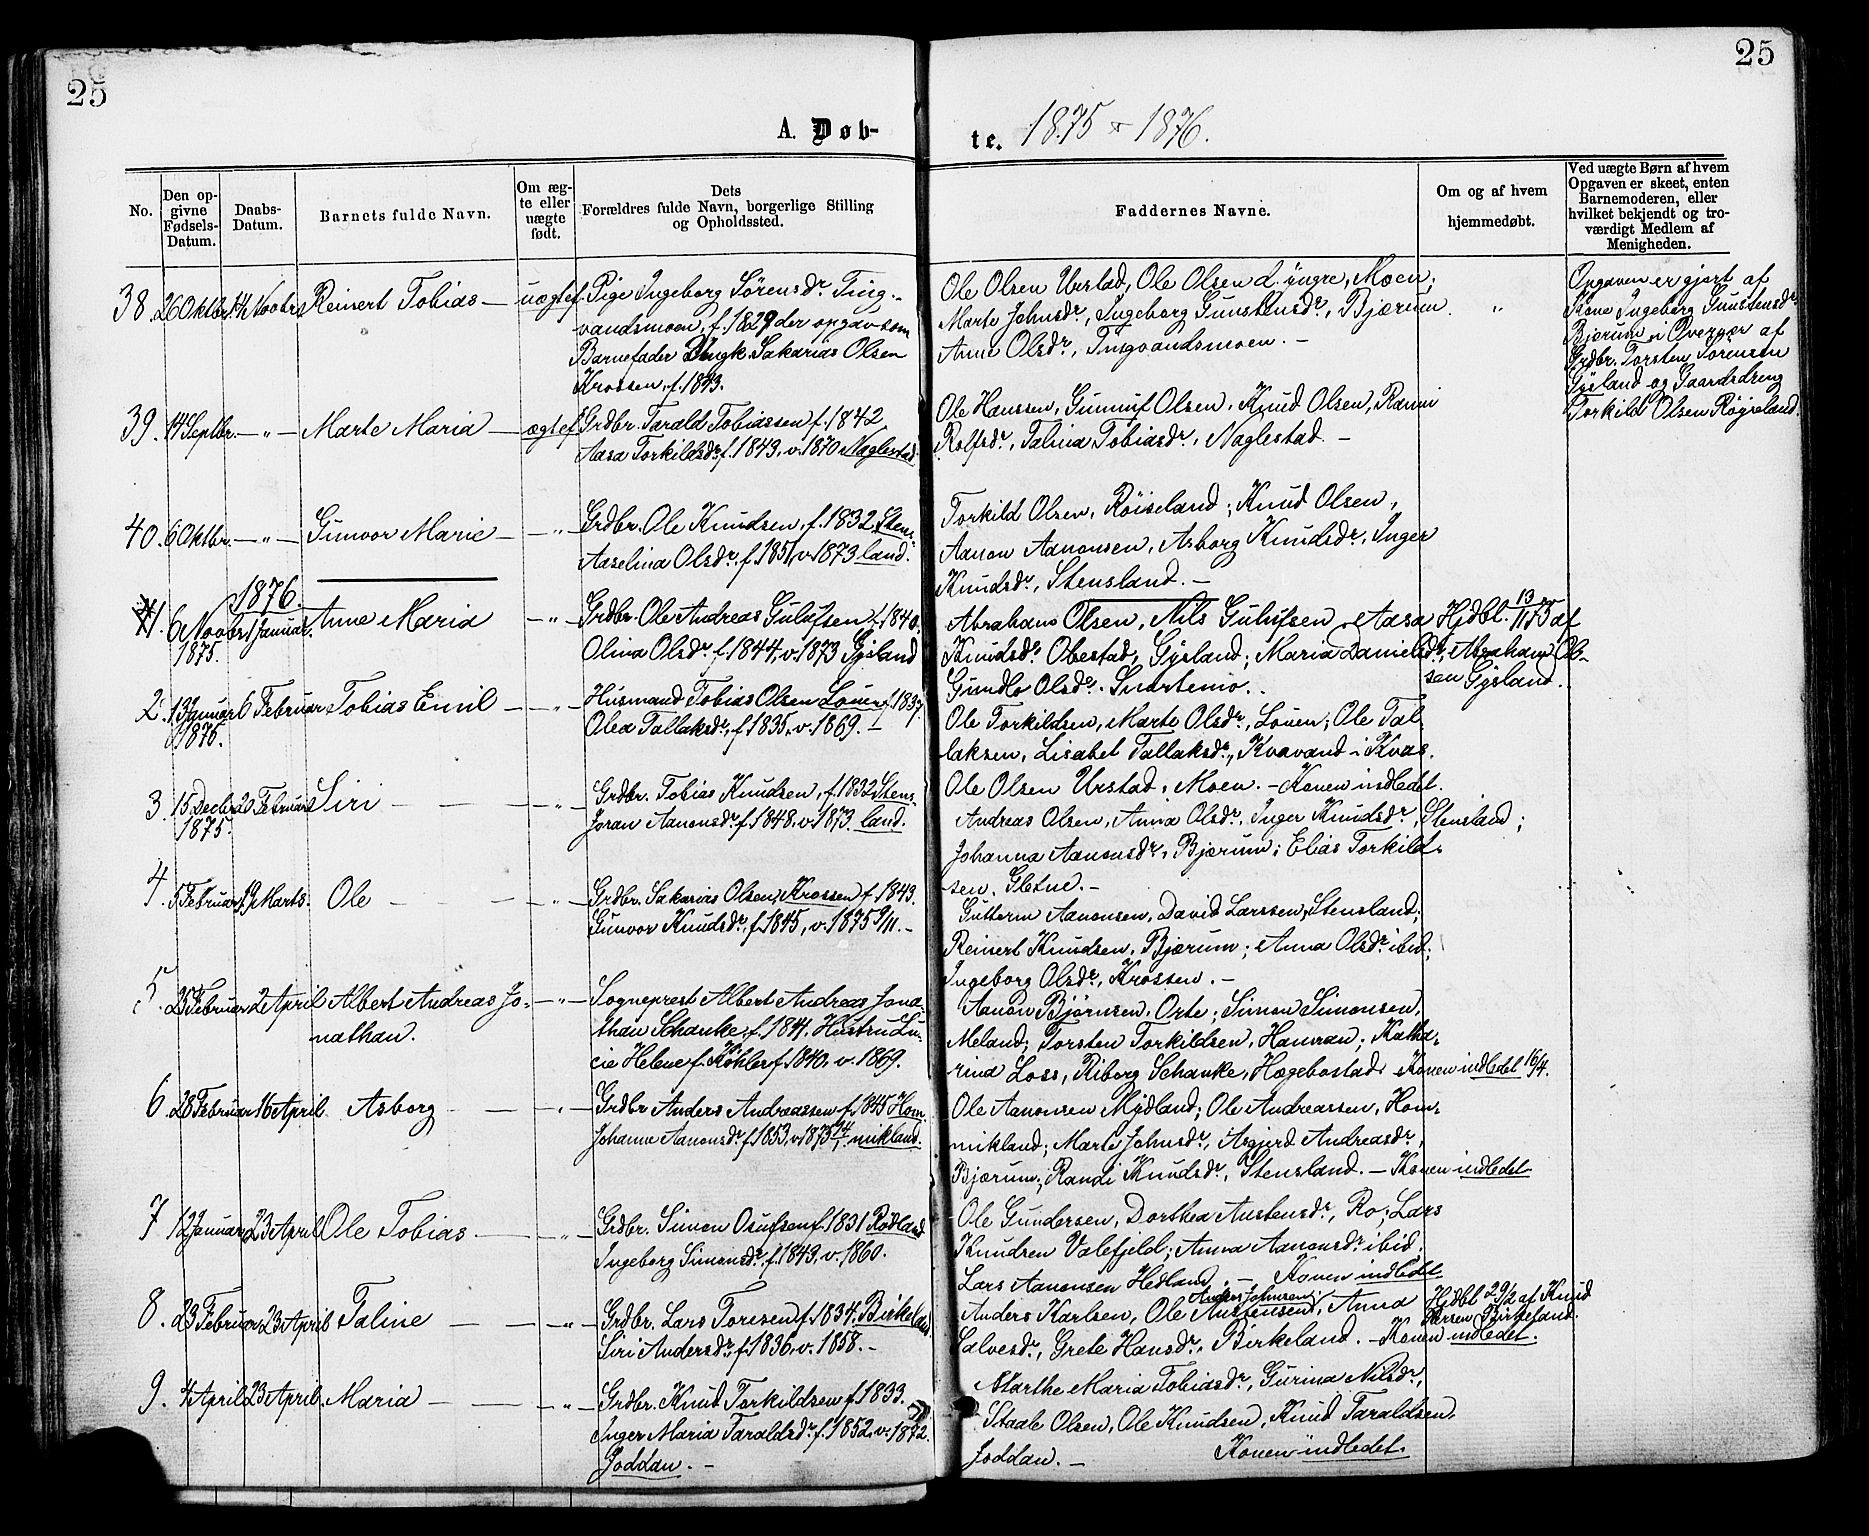 25
25
A. Døb-
te. 1875 - 1876.
No.
Den op-
givne
Fødsels-
Datum.
Daabs-
Datum.
Barnets fulde Navn.
Om æg-
te eller
uægte
født.
Dets
Forældres fulde Navn, borgerlige Stilling
og Opholdssted.
Faddernes Navne.
Om og af hvem
hjemmedøbt.
Ved uægte Børn af hvem
Opgaven er skeet, enten
Barnemoderen, eller
hvilket bekjendt og tro-
værdigt Medlem af
Menigheden.
38. 26 Oktbr. 14 Novbr. Reinert Tobias — uægtef. Pige Ingeborg Sørensdr. Ting-
vandsmoen, f. 1829 der opgav som
Barnefader Ungk. Sakarias Olsen
Krossen, f. 1843.
Ole Olsen Urstad, Ole Olsen d. yngre, Moen;
Marte Johnsdr., Ingeborg Gunstensdr., Bjærum. "
Anne Olsdr., Tingvandsmoen. —
Opgaven er gjort af
Kone Ingeborg Gunstensdr.
Bjærum i Overvær af
Grdbr. Torsten Sørensen
Gysland og Gaardsdreng
Torkild Olsen Røyseland.
39. 14 Septbr. — " — Marte Maria — ægtef. Grdbr. Tarald Tobiassen f. 1842
Aasa Torkildsdr. f. 1843, v. 1870 Naglestad.
Ole Hanssen, Gunnuf Olsen, Knud Olsen, Ranni
Rolfsdr., Talina Tobiasdr., Naglestad. —
40. 6 Oktbr. — " — Gunvor Marie — " — Grdbr. Ole Knudsen, f. 1832 Stens-
Aaselina Olsdr., f. 1851, v. 1873 land.
Torkild Olsen, Røiseland; Knud Olsen,
Aanon Aanonsen, Asborg Knudsdr., Inger
Knudsdr., Stensland. —
1876
1. 6 Novbr. 1 Januar. Anne Maria — " — Grdbr. Ole Andreas Gulufsen, f. 1840.
1875. Olina Olsdr. f. 1844, v. 1873 Gysland
Abraham Olsen, Nils Gulufsen, Aasa Hjdbt. 13/11 75 af
Knudsdr. Obestad, Gysland; Maria Danielsdr., Abraham Ol-
Gundlo Olsdr. Snartemo. sen Gysland.
2. 13 Januar 6 Februar Tobias Emil — " — Husmand Tobias Olsen Louen f. 1837.
1876. Olea Tallaksdr., f. 1835, v. 1869. —
Ole Torkildsen, Marte Olsdr., Louen; Ole Tal-
laksen, Lisabet Tallaksdr., Kvavand i Kvas.
Ole Olsen Urstad, Moen. — Konen indledet.
3. 15 Decbr. 20 Februar Siri — " — Grdbr. Tobias Knudsen, f. 1832 Stens-
1875. Joran Aanonsdr. f. 1848, v. 1873. land.
Andreas Olsen, Anna Olsdr., Inger Knudsdr., Stensland;
Johanna Aanonsdr., Bjærum; Elias Torkild-
sen, Gletne. —
4. 5 Februar 19 Marts. Ole — " — Grdbr. Sakarias Olsen, Krossen f. 1843.
Gunvor Knudsdr., f. 1845, v. 1875 9/11. —
Guttorm Aanonsen, David Larssen, Stensland;
Reinert Knudsen, Bjærum; Anna Olsdr. ibid;
Ingeborg Olsdr., Krossen. —
5. 25 Februar 2 April Albert Andreas Jo- — " — Sogneprest Albert Andreas Jona-
nathan. than Schanke, f. 1841. Hustru Lu-
cie Helene f. Köhler f. 1840, v. 1869.
Aanon Bjørnsen, Orte; Simon Simonsen,
Meland; Torsten Torkildsen, Hamran; Katha-
rina Loss, Riborg Schanke, Hægebostad. Konen indledet 16/4.
6. 28 Februar 16 April. Asborg — " — Grdbr. Anders Andreassen f. 1845 Hom-
Johanne Aanonsdr. f. 1853, v. 1875 mikland.
Ole Aanonsen Mydland; Ole Andreassen, Hom-
mikland; Marte Johnsdr., Asgjerd Andreasdr.,
Bjærum; Randi Knudsdr., Stensland. — Konen indledet
7. 12 Januar 23 April Ole Tobias — " — Grdbr. Simon Osufsen f. 1831 Rødland
Ingeborg Simonsdr., f. 1843, v. 1860.
Ole Gundersen, Dorthea Austensdr., Ro; Lars
Knudsen Valefjeld; Anna Aanonsdr. ibid.
Lars Aanonsen Hedland. — Konen indledet
8. 23 Februar 23 April Taline — " — Grdbr. Lars Toresen f. 1834. Birkeland.
Siri Andersdr., f. 1836, v. 1858. —
Anders Johnsen
Anders Karlsen, Ole Austensen, Anna Hjdbt 29/2 af Knud
Salvesdr., Grete Hansdr., Birkeland. — Konen indledet. Larsen Birkeland.
9. 4 April 23 April. Maria — " — Grdbr. Knud Torkildsen f. 1833.
Inger Maria Taraldsdr. f. 1852, v. 1872.
Joddan. —
Marthe Maria Tobiasdr., Gurina Nilsdr.,
Staale Olsen, Ole Knudsen, Knud Taraldsen,
Joddan. — Konen indledet.